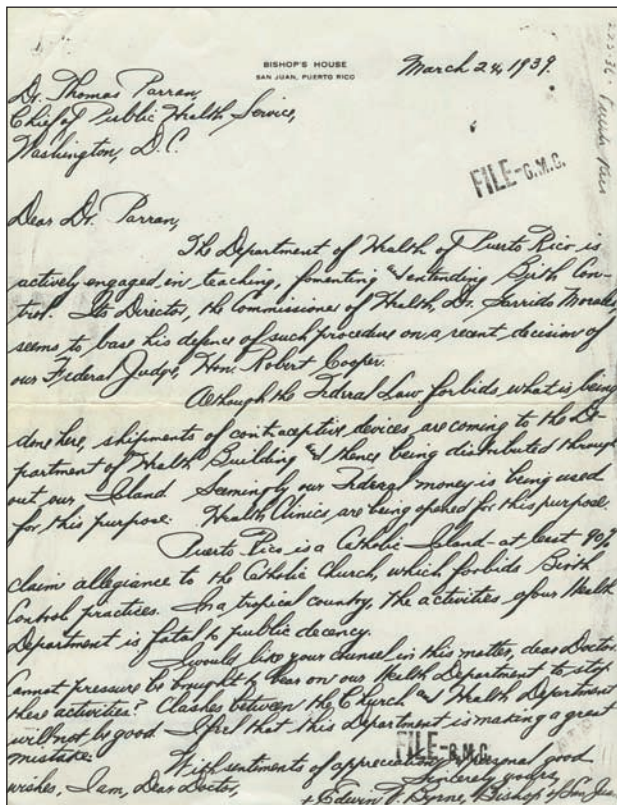 BISHOP'S HOUSE
SAN JUAN, PUERTO RICO
March 24, 1939.
Dr. Thomas Parran,
Chief of Public Health Service,
Washington, D.C.
FILE-G.M.C.
Dear Dr. Parran,
The Department of Health of Puerto Rico is
actively engaged in teaching, fomenting extending Birth Con-
trol. Its Director, the Commissioner of Health, Dr. Garrido Morales,
seems to base his defence of such procedure on a recent decision of
our Federal Judge, Hon. Robert Cooper.
Although the Federal Law forbids what is being
done here, shipments of contraceptive devices are coming to the De-
partment of Health Building & thence being distributed through
out our Island. Seemingly our Federal money is being used
for this purpose. Health Clinics are being opened for this purpose.
Puerto Rico is a Catholic Island - at least 90%
claim allegiance to the Catholic Church, which forbids Birth
Control practices. In a tropical country, the activities of our Health
Department is fatal to public decency.
I would like your counsel in this matter, dear Doctor.
Cannot pressure be brought to bear on our Health Department to stop
these activities? Clashes between the Church and Health Department
will not be good. I feel that this Department is making a great
mistake.
FILE-G.M.C.
With sentiments of appreciation, personal good
wishes, I am, Dear Doctor,
Sincerely yours,
+ Edwin V. Byrne, Bishop of San Juan